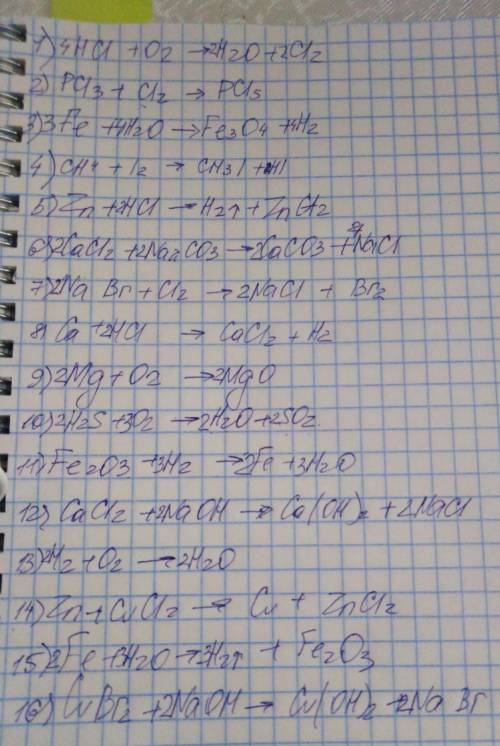 1) 4HCl + O2 → 2H2O + 2Cl2
2) PCl3 + Cl2 → PCl5
3) 3Fe + 4H2O → Fe3O4 + 4H2
4) CH4 + I2 → CH3I + 2HI
5) Zn + 2HCl → H2↑ + ZnCl2
6) 2CaCl2 + 2Na2CO3 → 2CaCO3 + 2NaCl
7) 2NaBr + Cl2 → 2NaCl + Br2
8) Ca + 2HCl → CaCl2 + H2
9) 2Mg + O2 → 2MgO
10) 2H2S + 3O2 → 2H2O + 2SO2
11) Fe2O3 + 3H2 → 2Fe + 3H2O
12) CaCl2 + 2NaOH → Ca(OH)2 + 2NaCl
13) 2H2 + O2 → 2H2O
14) Zn + CuCl2 → Cu + ZnCl2
15) 2Fe + 3H2O → 3H2↑ + Fe2O3
16) CuBr2 + 2NaOH → Cu(OH)2 + 2NaBr